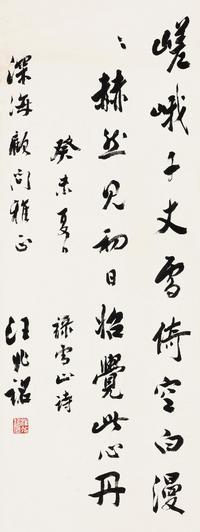 嵯峨千丈雪倚空白漫
〻赫然見初日始覺此心丹
癸未夏日 録雪山诗
深海顧问雅正 汪兆銘